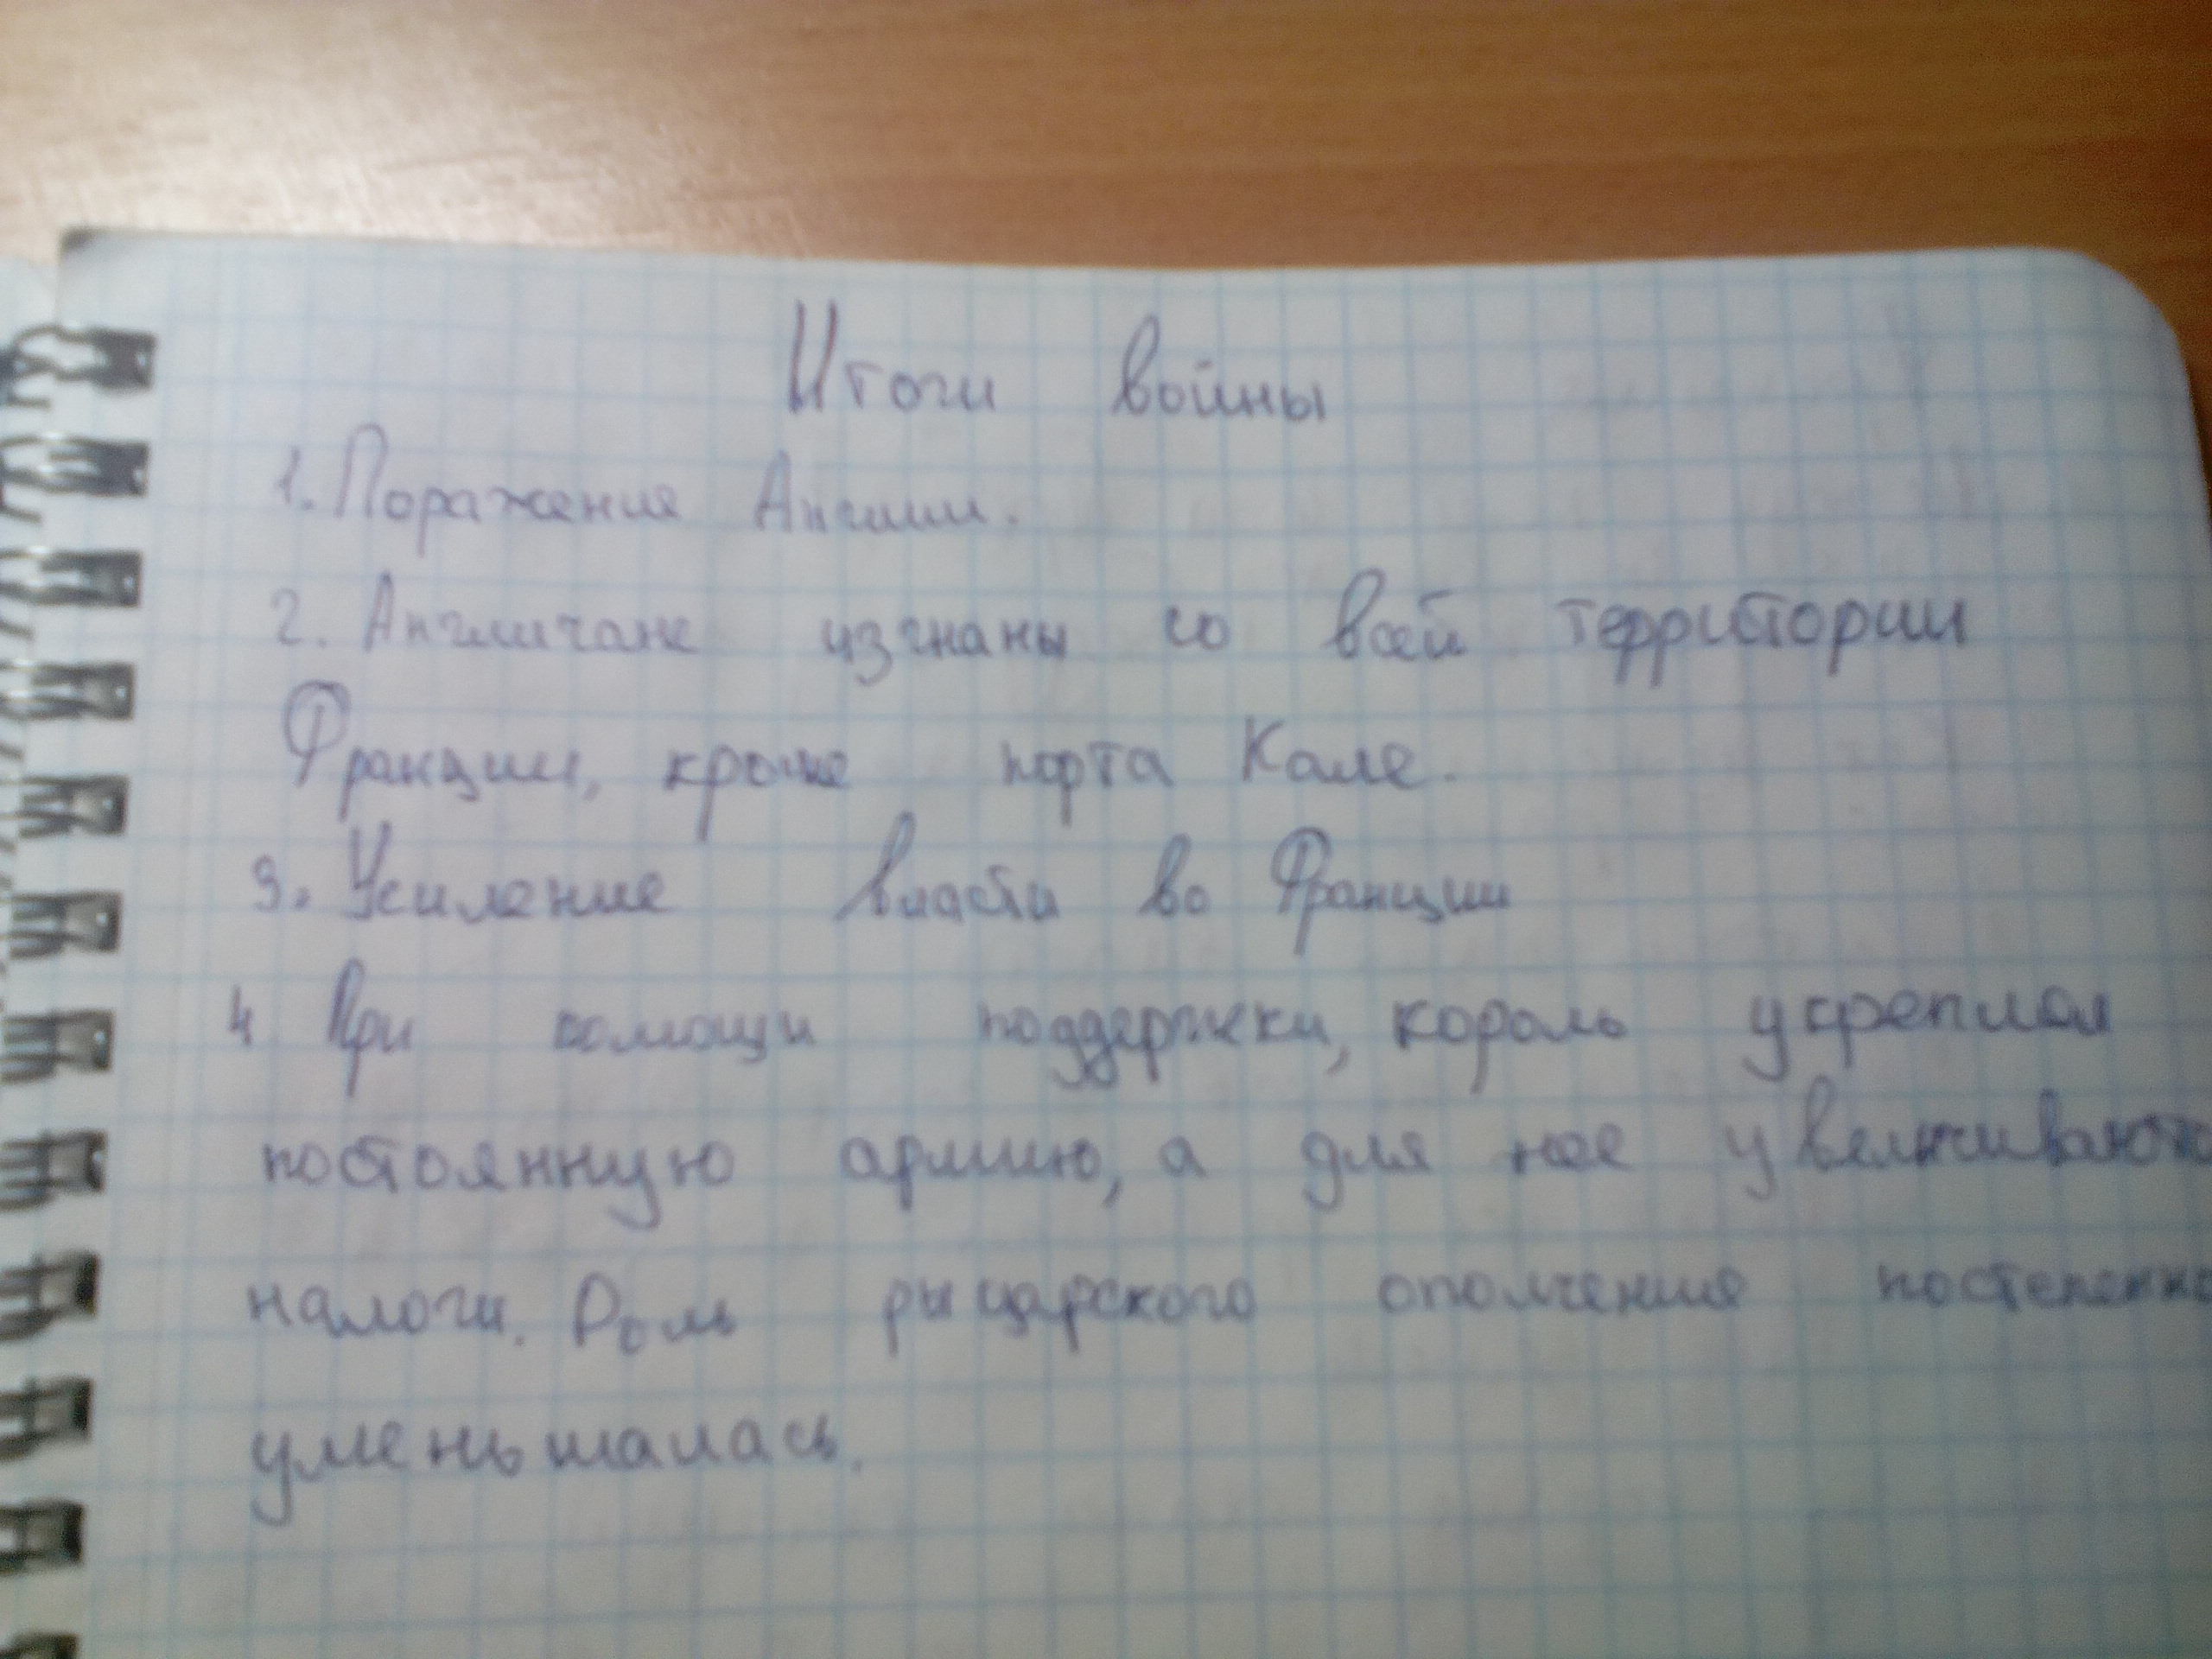 Итоги войны
1. Поражение Англии.
2. Англичане изгнаны со всей территории
Франции, кроме порта Кале.
3. Усиление власти во Франции
4. При помощи поддержки, король укреплял
постоянную армию, а для нее увеличиваются
налоги. Роль рыцарского ополчения постепенно
уменьшалась.